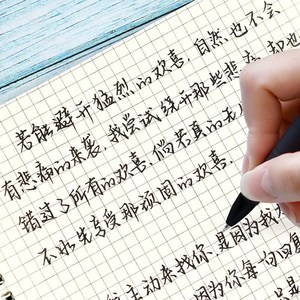 若能避开猛烈的欢喜，自然也不会
有悲痛的来袭。我尝试绕开那些悲痛，却也
错过了所有的欢喜。倘若真的无
不如先享受那顷间的欢喜。
主动来找你，是因为我
因为你每句回复